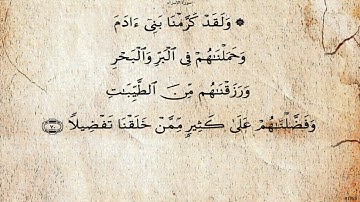 سورة الإسراء
۞ وَلَقَدْ كَرَّمْنَا بَنِىٓ ءَادَمَ
وَحَمَلْنَٰهُمْ فِى ٱلْبَرِّ وَٱلْبَحْرِ
وَرَزَقْنَٰهُم مِّنَ ٱلطَّيِّبَٰتِ
وَفَضَّلْنَٰهُمْ عَلَىٰ كَثِيرٍ مِّمَّنْ خَلَقْنَا تَفْضِيلًا ٧٠